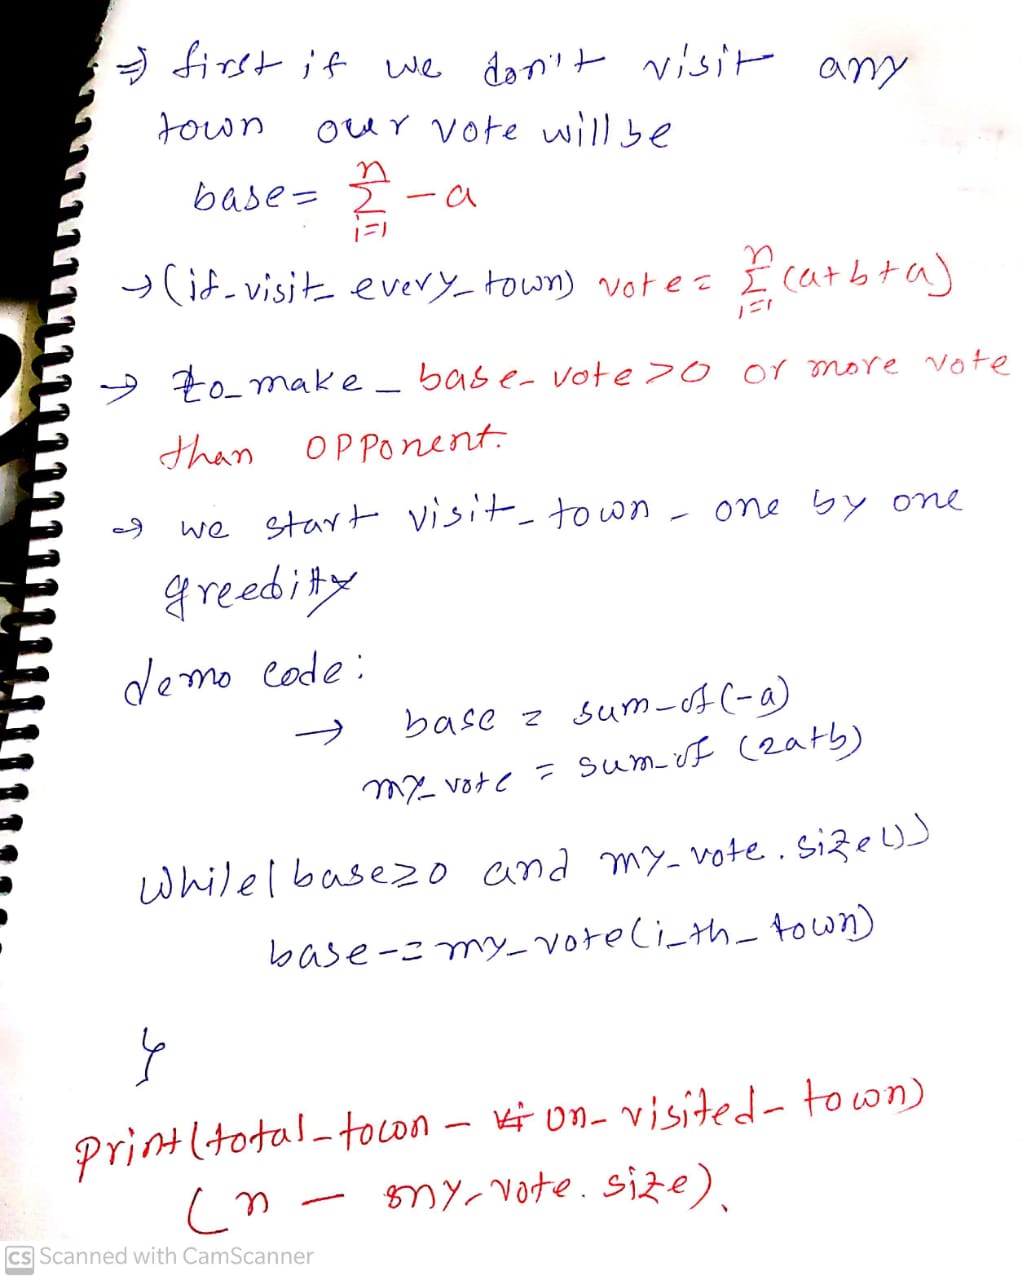 ⇒ first if we don't visit any
town our vote will be
base = n Σ i=1 -a
→ (if_visit_every_town) vote = n Σ i=1 (a+b+a)
→ to_make_base_vote >0 or more vote
than opponent.
→ we start visit_town_one by one
greedity
demo code:
→ base = sum_of(-a)
my_vote = sum_of (2a+b)
while( base≥0 and my_vote.size())
base-=my_vote(i_th_town)
}
print(total_town - un_visited_town)
(n - my_vote.size).
CS Scanned with CamScanner